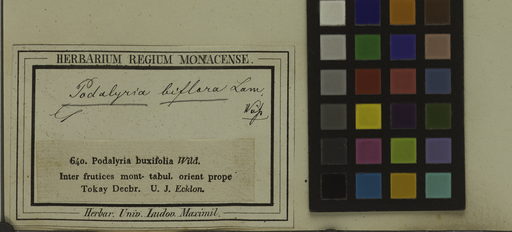 HERBARIUM REGIUM MONACENSE.
Podalyria biflora Lam.
640. Podalyria buxifolia Wild.
Inter frutices mont. tabul. orient prope
Tokay Decbr. U. J. Ecklon.
Herbar. Univ. Ludov. Maximil.